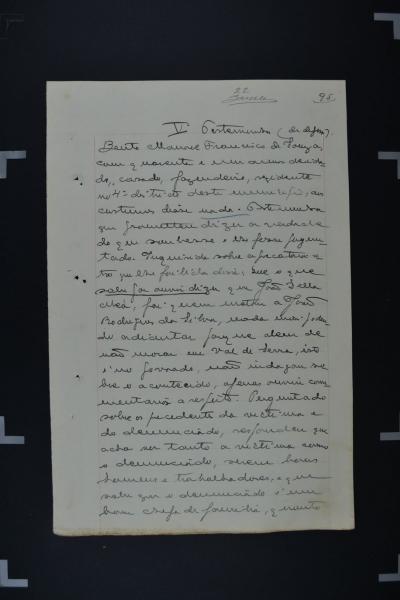 95
V Testemunha (de defesa).
Bento Manoel Francisco de Souza,
com quarenta e um annos de ida-
de, casado, fazendeiro, residente
no 4º distrito deste municipio, aos
costumes disse nada. Testemunha
que prometteu dizer a verdade
do que soubesse e lhe fosse pergun-
tado. Inquirido sobre a precatoria
que lhe foi lida disse: que o que
sabe por ouvir dizer que João
foi quem matou a João
Rodrigues da Silva, nada mais poden-
do adiantar porque alem de
não morar em Val de Serra, isto
é no povoado, não indagou so-
bre o acontecido, apenas ouviu com-
mentarios a respeito. Perguntado
sobre os precedentes da victima e
do denunciado, respondeu que
acha ser tanto a victima como
o denunciado, serem bons
homens e trabalhadores, e que
sabe que o denunciado é um
bom chefe de familia, quanto